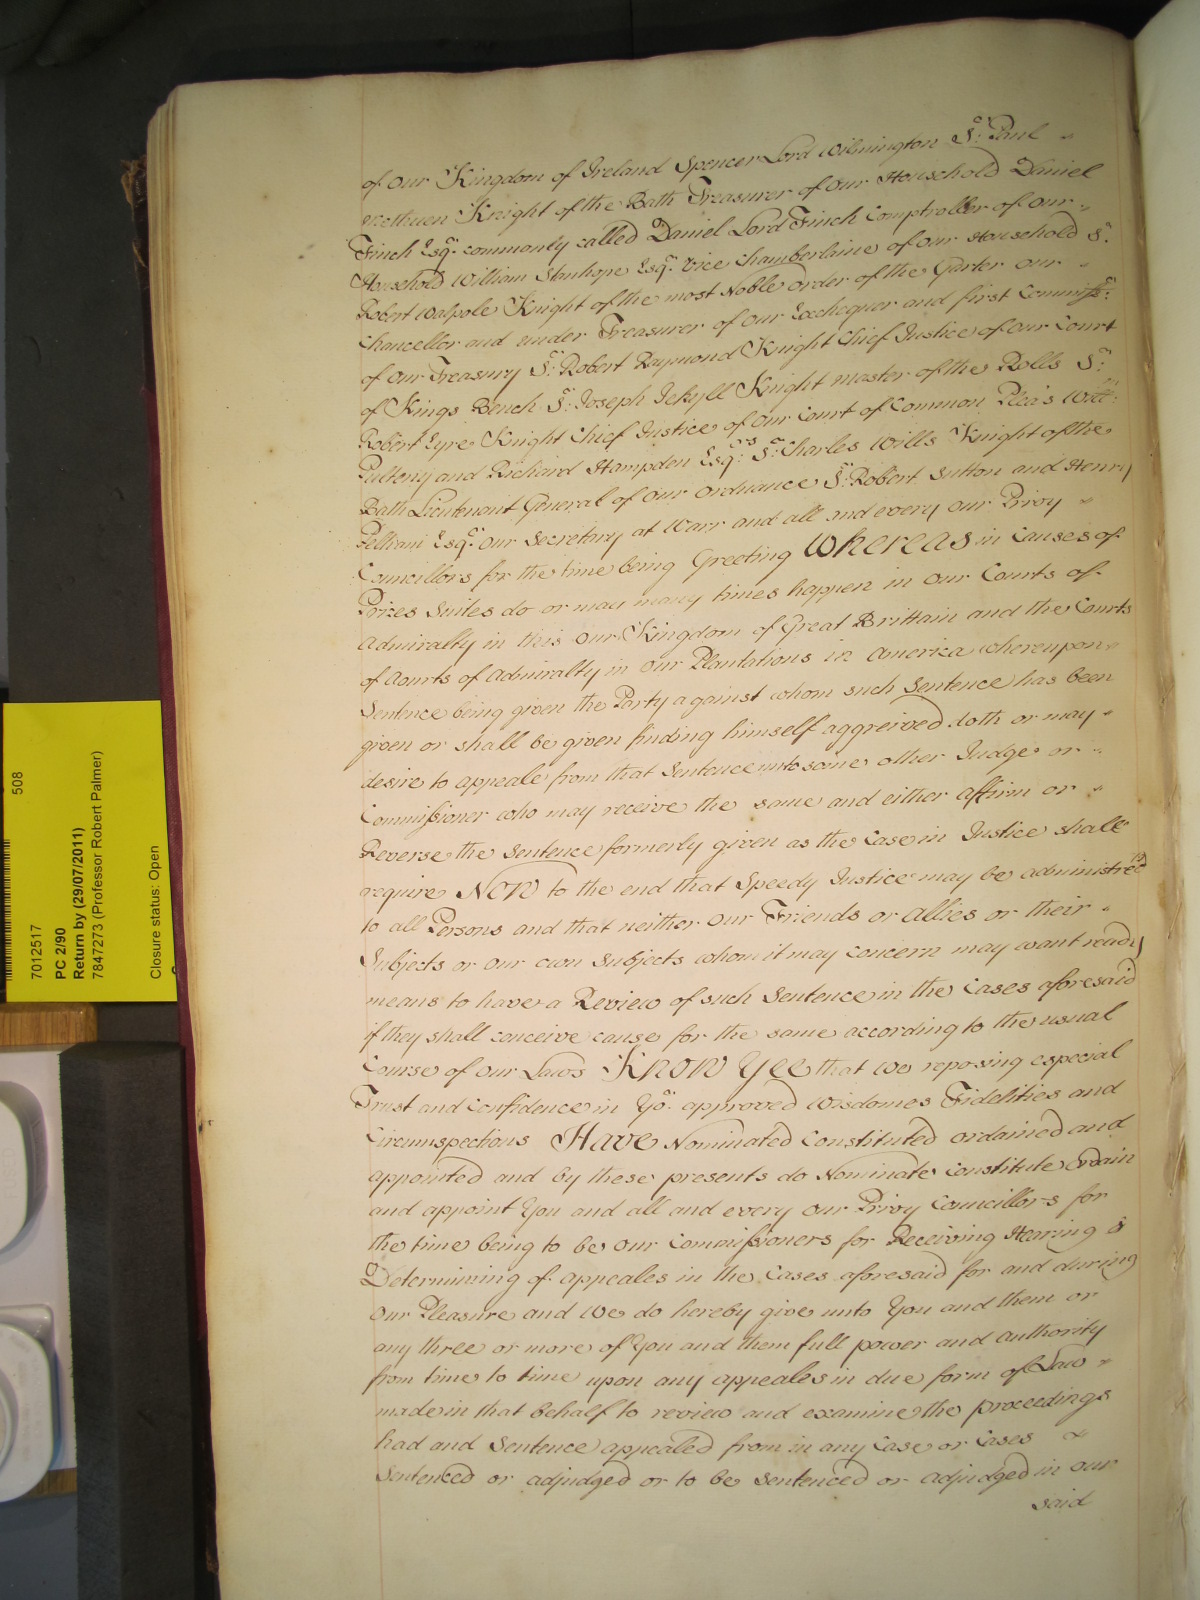 of our Kingdom of Ireland Spencer Lord Wilmington Sr. Paul
Methuen Knight of the Bath Treasurer of our Household Daniel
Finch Esqr. commonly called Daniel Lord Finch Comptroller of our
Household William Stanhope Esqr. Vice Chamberlaine of our Household Sr.
Robert Walpole Knight of the most Noble order of the Garter our
Chancellor and under Treasurer of our Exchequer and first Commissr.
of our Treasury Sr. Robert Raymond Knight Chief Justice of our Court
of Kings Bench Sr. Joseph Jekyll Knight Master of the Rolls Sr.
Robert Eyre Knight Chief Justice of our Court of Common Pleas Willm.
Pulteny and Richard Hampden Esqrs. Sr. Charles Wills Knight of the
Bath Lieutenant General of our ordnance Sr. Robert Sutton and Henry
Pelham Esqr. our Secretary at Warr and all and every our Privy
Councillors for the time being Greeting Whereas in Causes of
Prizes Suites do or may many times happen in our Courts of
Admiralty in this our Kingdom of Great Brittain and the Courts
of Courts of Admiralty in our Plantations in America whereupon
Sentence being given the Party against whom such Sentence has been
given or shall be given finding himself aggreived doth or may
desire to appeale from that Sentence unto some other Judge or
Commissioner who may receive the same and either affirm or
Reverse the Sentence formerly given as the Case in Justice shall
require Now to the end that Speedy Justice may be administred
to all Persons and that neither our Friends or Allies or their
Subjects or our own Subjects whom it may concern may want ready
means to have a Review of such Sentence in the Cases aforesaid
if they shall conceive cause for the same according to the usual
Course of our Laws Know Yee that we reposing especial
Trust and Confidence in Yor. approved Wisdomes Fidelities and
Circumspections Have Nominated Constituted ordained and
appointed and by these presents do Nominate Constitute ordain
and appoint You and all and every our Privy Councillors for
the time being to be our Commissioners for Receiving Hearing &
Determining of appeales in the Cases aforesaid for and during
our Pleasure and We do hereby give unto You and them or
any three or more of You and them full power and authority
from time to time upon any appeales in due form of Law
made in that behalf to review and examine the proceedings
had and Sentence appealed from in any Case or Cases
Sentenced or adjudged or to be Sentenced or adjudged in our
said
508
7012517
PC 2/90
Return by (29/07/2011)
7847273 (Professor Robert Palmer)
Closure status: Open